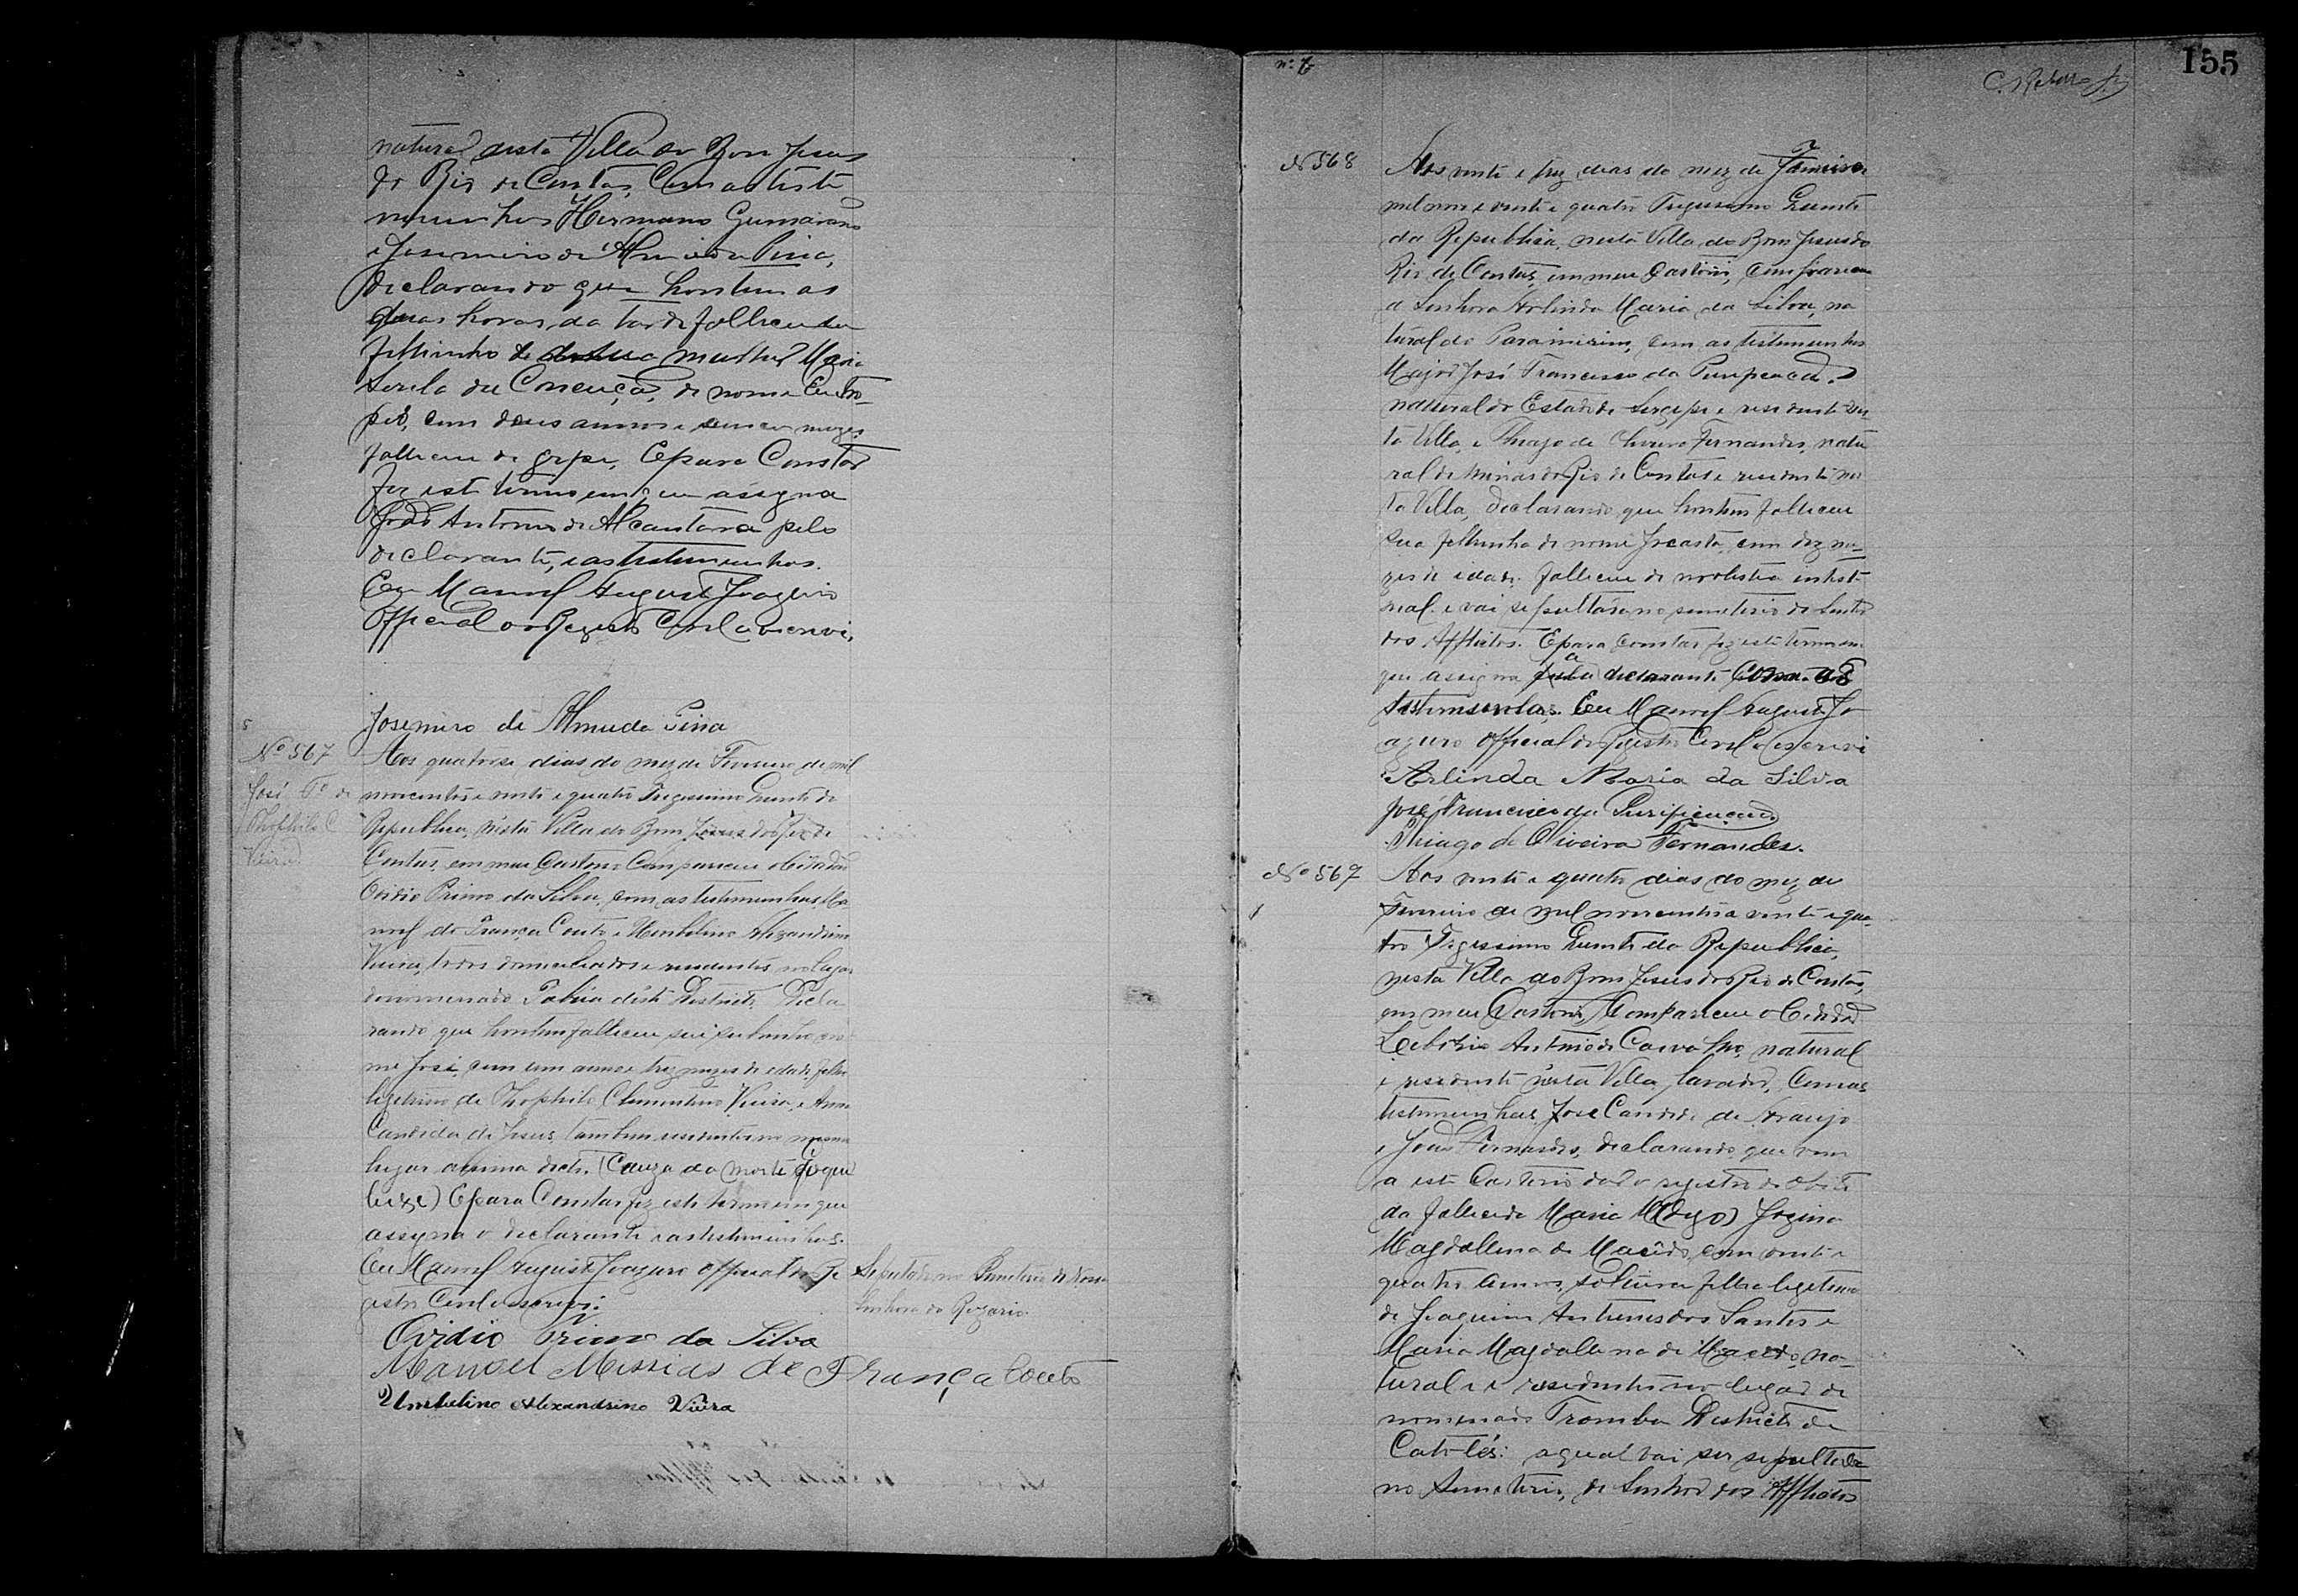 natural desta Villa do Bom Jesus
do Rio de Contas, Com as teste
munhas Hermano Guimarães
e Josemiro de Almeida Pina,
declarando que hontem as
duas horas da tarde falleceu seu
filhinho de mulher Maria
da Conceição, de nome Eutro-
pio, com dous annos e cinco mezes
falleceu de gripe, E para Constar
fiz este termo em que assigna
João Antonio de Alcantara pelo
declarante, e as testemunhas.
Eu Manoel Augusto Joazeiro
Official do Registro Civil o escrevi.
Josemiro de Almeida Pina
Nº 567
José Fº de
Thophilo C
Vieira
Aos quatorse dias do mez de Fevereiro de mil
novecentos e vinte e quatro Trigesimo Quinto da
Republica, nésta Villa do Bom Jesus do Rio de
Contas, em meu Cartorio Compareceu o Cidadão
Ovidio Primo da Silva, com as testemunhas, Ma
noel de França Couto e Umbelino Alexandrino
Vieira, todos domiciliados e residentes no lugar
denominado déste Districto, Decla
rando que hontem falleceu seu no
me José, com um anno e trez mezes de idade, filho
legitimo de Thophilo Clementino Vieira, e Anna
Candida de Jesus, tambem residentes no mesmo
lugar acima dicto. (Cauza da morte Coque
luxe) E para Constar fiz este termo em que
assigna o declarante e as testemunhas.
Eu Manoel Augusto Joazeiro Official do Re
gistro Civil o escrevi.
Sepultado no Cemiterio de Nossa
Senhora do Rozario
Ovidio Primo da Silva
Manoel Messias de França Couto
Umbelino Alexandrino Vieira
155
Nº 568
Aos vinte e trez dias do mez de Fevereiro
mil nove e vinte e quatro Trigesimo Quinto
da Republica, nesta Villa do Bom Jesus do
Rio de Contas, em meu Cartorio, Compareceu
a Senhora Arlinda Maria da Silva, na
tural do Paramirim, com as testemunhas
Major José Francisco da Purificação
natural do Estado de Sergipe e residente nes
ta Villa, e Thiago de Oliveira Fernandes, natu
ral de Minas do Rio de Contas e residente nes
ta Villa, declarando que hontem falleceu
sua filhinha de nome Jocasta, com dez me-
zes de idade. falleceu de molestia intesti
nal. e vai sepultar-se no cemeterio do Senhor
dos Afflictos. E para Constar fiz este termo em
que assigna a declarante com as
testemunhas. Eu Manoel Augusto Jo
azeiro Official do Registro Civil o escrevi
Arlinda Maria da Silva
José Francisco da Purificação
Thiago de Oliveira Fernandes.
Nº 569
Aos vinte e quatro dias do mez de
Fevereiro de mil novecentos e vinte e qua-
tro Trigesimo Quinto da Republica,
nesta Villa do Bom Jesus do Rio de Contas,
em meu Cartorio, Compareceu o Cidadão
Antonio de Carvalho, natural
e residente nésta Villa, lavrador, Com as
testemunhas José Candido de Araujo
e João Fernandes, declarando que vem
a este Cartorio dar o registro de obito
da fallecida Maria (digo) Jozina
Magdallena de Macêdo, com vinte e
quatro annos, solteira filha legitima
de Joaquim Antunes dos Santos e
Maria Magdallena de Macêdo, na-
tural e residentes no lugar de
nominado Tromba Districto de
Catolés: a qual vai ser sepultada
no Semeterio, de Senhor dos Afflictos